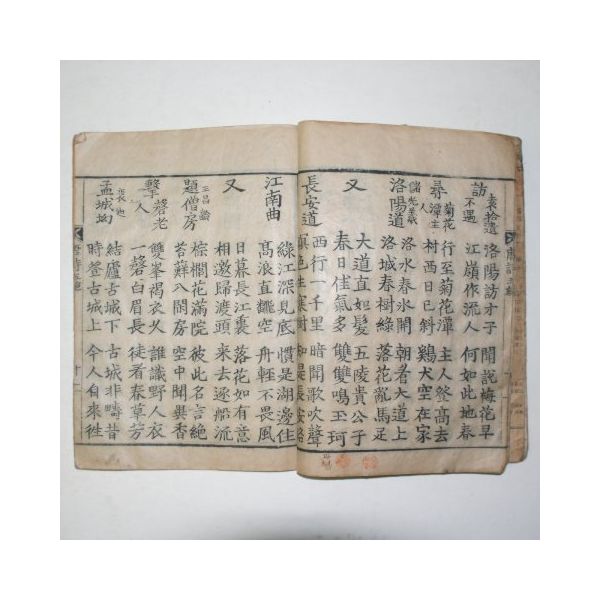 訪袁拾遺不遇
洛陽訪才子 聞說梅花早
江嶺作流人 何如此地春
尋菊花潭主人
行至菊花潭 主人登高去
村西日已斜 鷄犬空在家
洛陽道 儲光羲
洛水春水開 朝者大道上
洛城春樹綠 落花亂馬足
又
大道直如髮 五陵貴公子
春日佳氣多 雙雙鳴玉珂
長安道
西行一千里 暗聞歌吹聲
暝色生寒樹 知是長安路
江南曲
綠江深見底 慣是湖邊住
高浪直飜空 舟輕不畏風
又
日暮長江裏 落花如有意
相邀歸渡頭 來去逐船流
題僧房 王昌齡
棕櫚花滿院 彼此名言絕
苔蘚入閑房 空中聞異香
擊磬老人
雙峯褐衣久 誰識野人衣
一磬白眉長 徒看春草芳
孟城坳 裴迪
結廬古城下 古城非疇昔
時登古城上 今人自來往